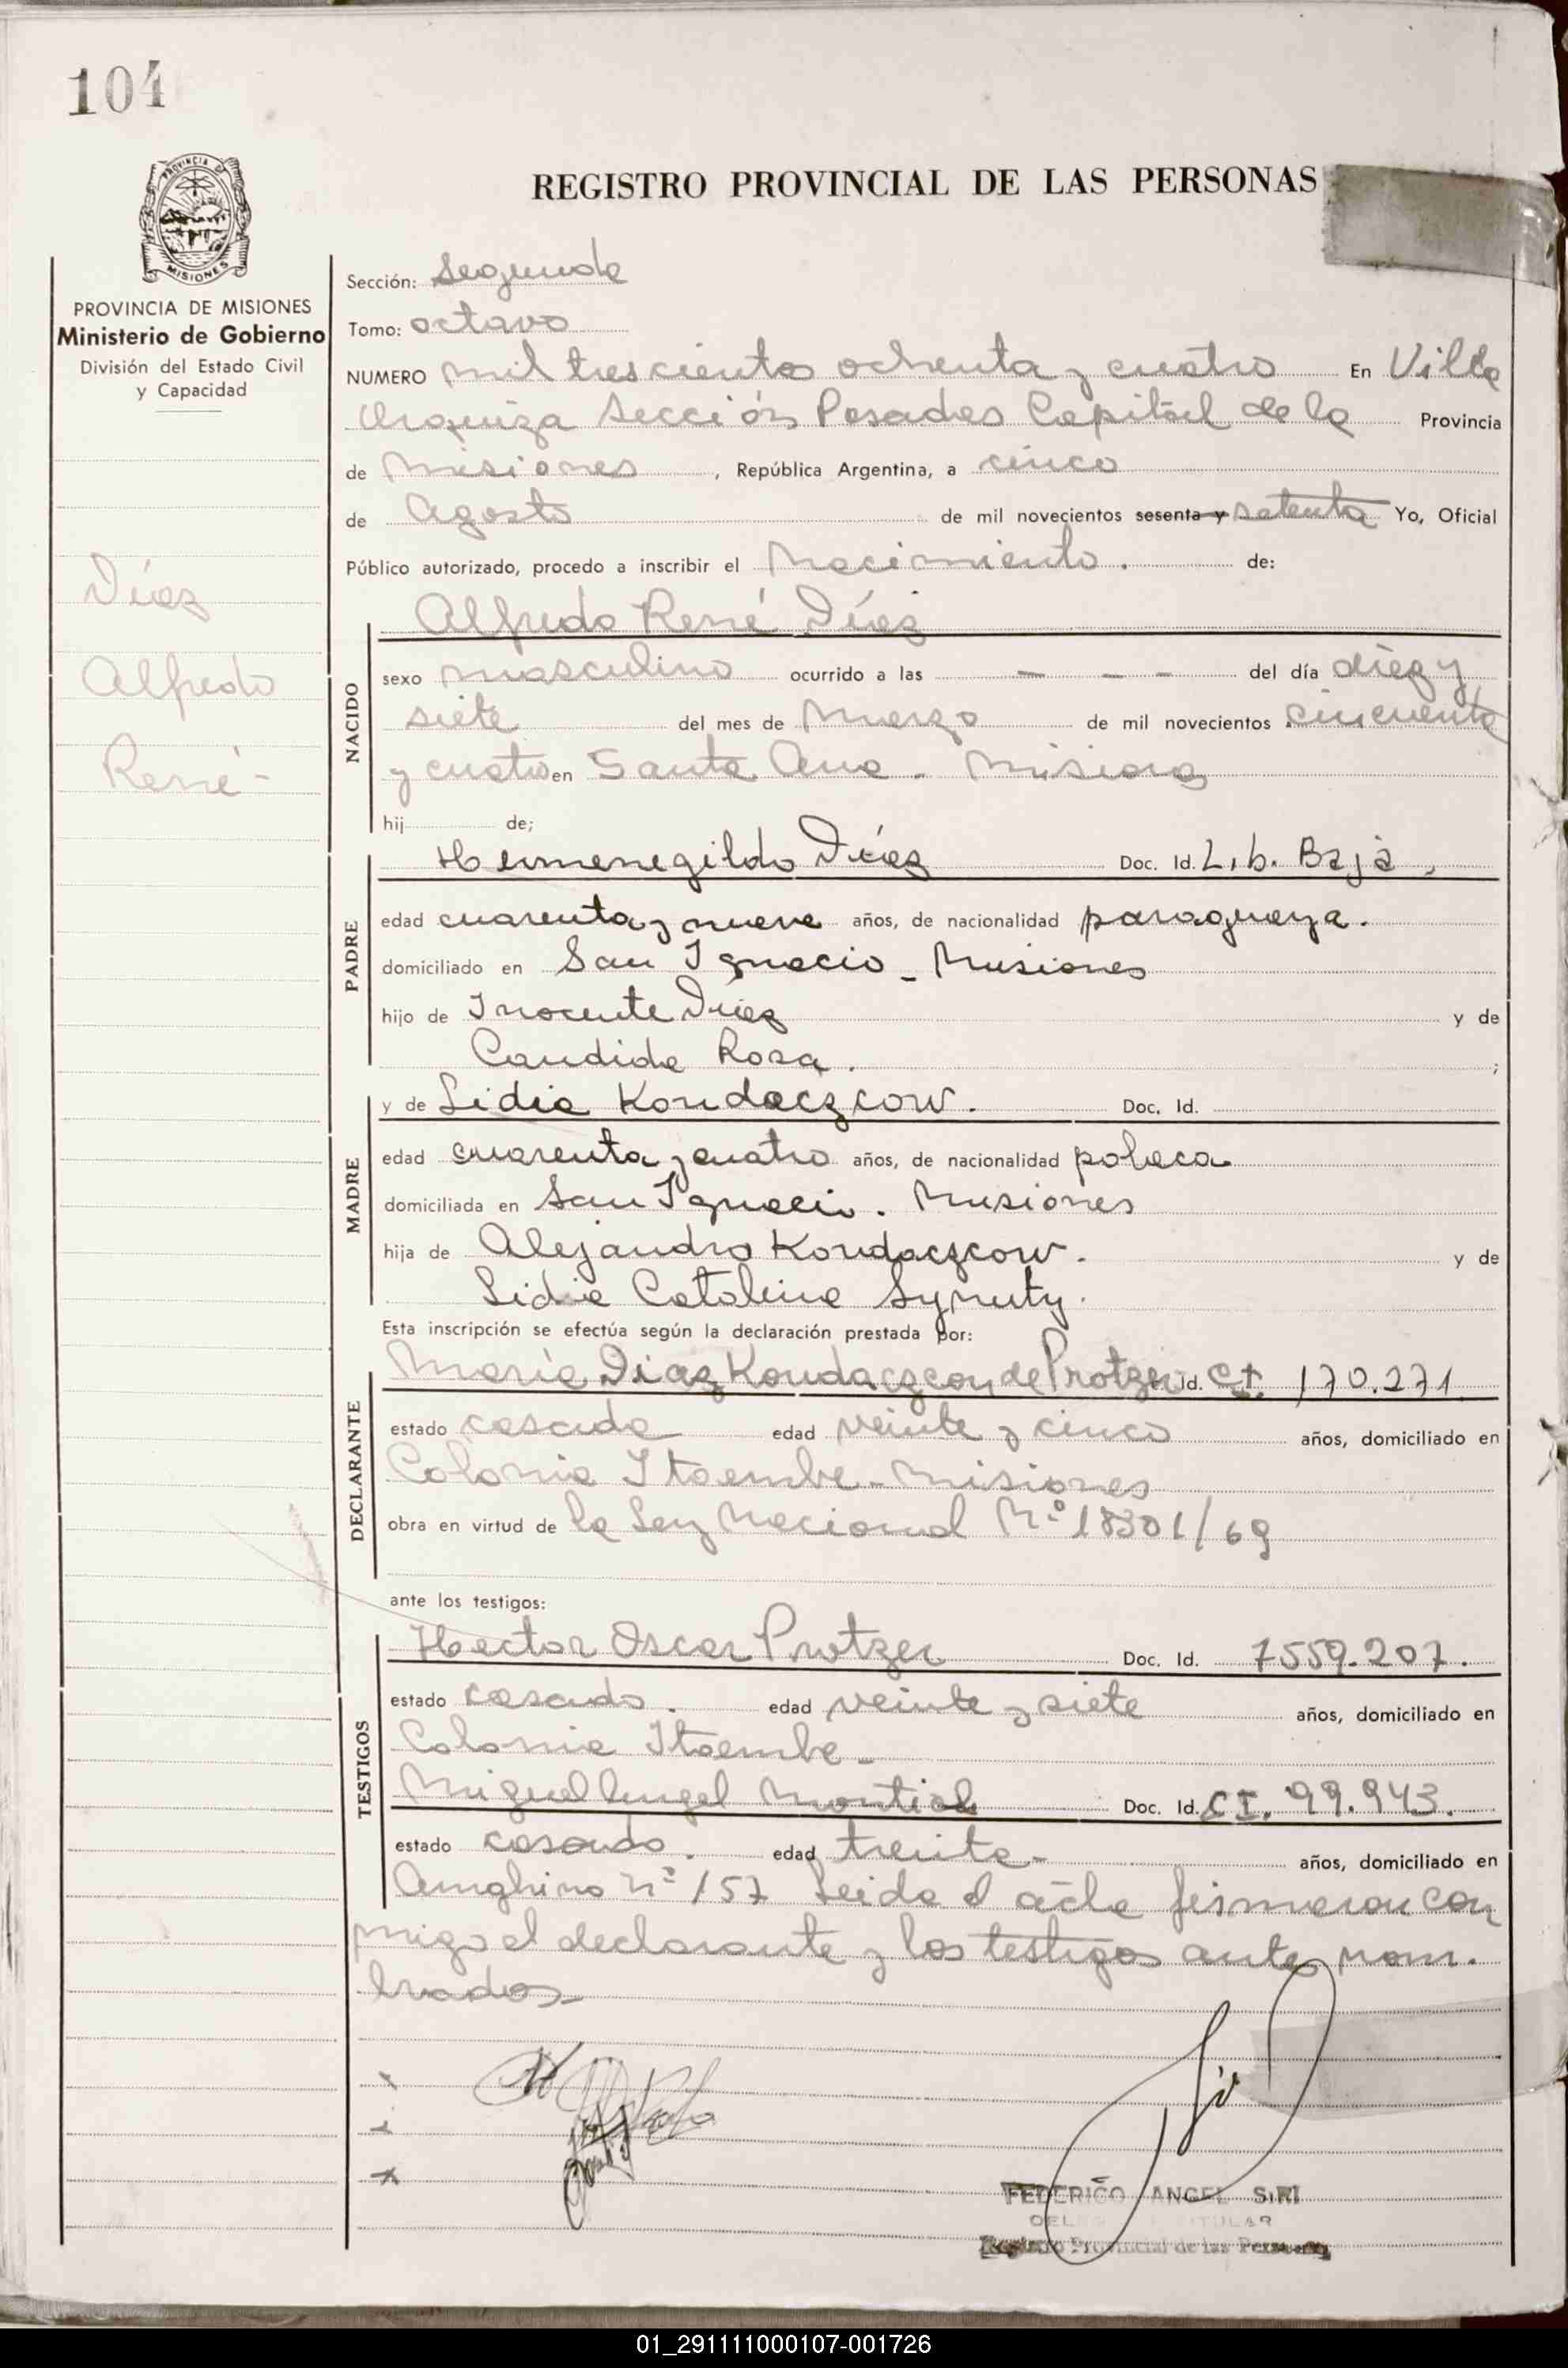 104
PROVINCIA DE MISIONES
REGISTRO PROVINCIAL DE LAS PERSONAS
PROVINCIA DE MISIONES
Ministerio de Gobierno
División del Estado Civil
y Capacidad
Díaz
Alfredo
René-
Sección: Segunda
Tomo: octavo
NUMERO mil trescientos ochenta y cuatro En Villa
Urquiza Sección Posadas Capital de la Provincia
de Misiones, República Argentina, a cinco
de Agosto de mil novecientos sesenta y setenta Yo, Oficial
Público autorizado, procedo a inscribir el Nacimiento. de:
NACIDO
Alfredo René Díaz
sexo masculino ocurrido a las - - - del día diez y
siete del mes de Marzo de mil novecientos cincuenta
y cuatro en Santa Ana. Misiones
hij de;
PADRE
Hermenegildo Díaz Doc. Id. L.b. Baja.
edad cuarenta y nueve años, de nacionalidad paraguaya.
domiciliado en San Ignacio - Misiones
hijo de Inocente Díaz y de
Candida Rosa. ;
MADRE
y de Lidia Kondaczcow. Doc. Id.
edad cuarenta y cuatro años, de nacionalidad polaca
domiciliada en San Ignacio. Misiones
hija de Alejandro Kondaczcow. y de
Lidia Catalina Synuty.
Esta inscripción se efectúa según la declaración prestada por:
DECLARANTE
María Diaz Kondaczcow de Protzer Id. CI. 170.271
estado casada edad veinte y cinco años, domiciliado en
Colonia Itaembe - Misiones
obra en virtud de la Ley Nacional Nº 18301/69
ante los testigos:
TESTIGOS
Hector Oscar Protzer Doc. Id. 7559.207.
estado casado. edad veinte y siete años, domiciliado en
Colonia Itaembe -
Miguel Angel Montiel Doc. Id. CI. 99.943.
estado casado. edad treinta - años, domiciliado en
Ameghino Nº 157 Leida el acta firmaron con
migo el declarante y los testigos antes nom-
brados-
FEDERICO ANGEL SIRI
TITULAR
Registro Provincial de las Personas
01_291111000107-001726